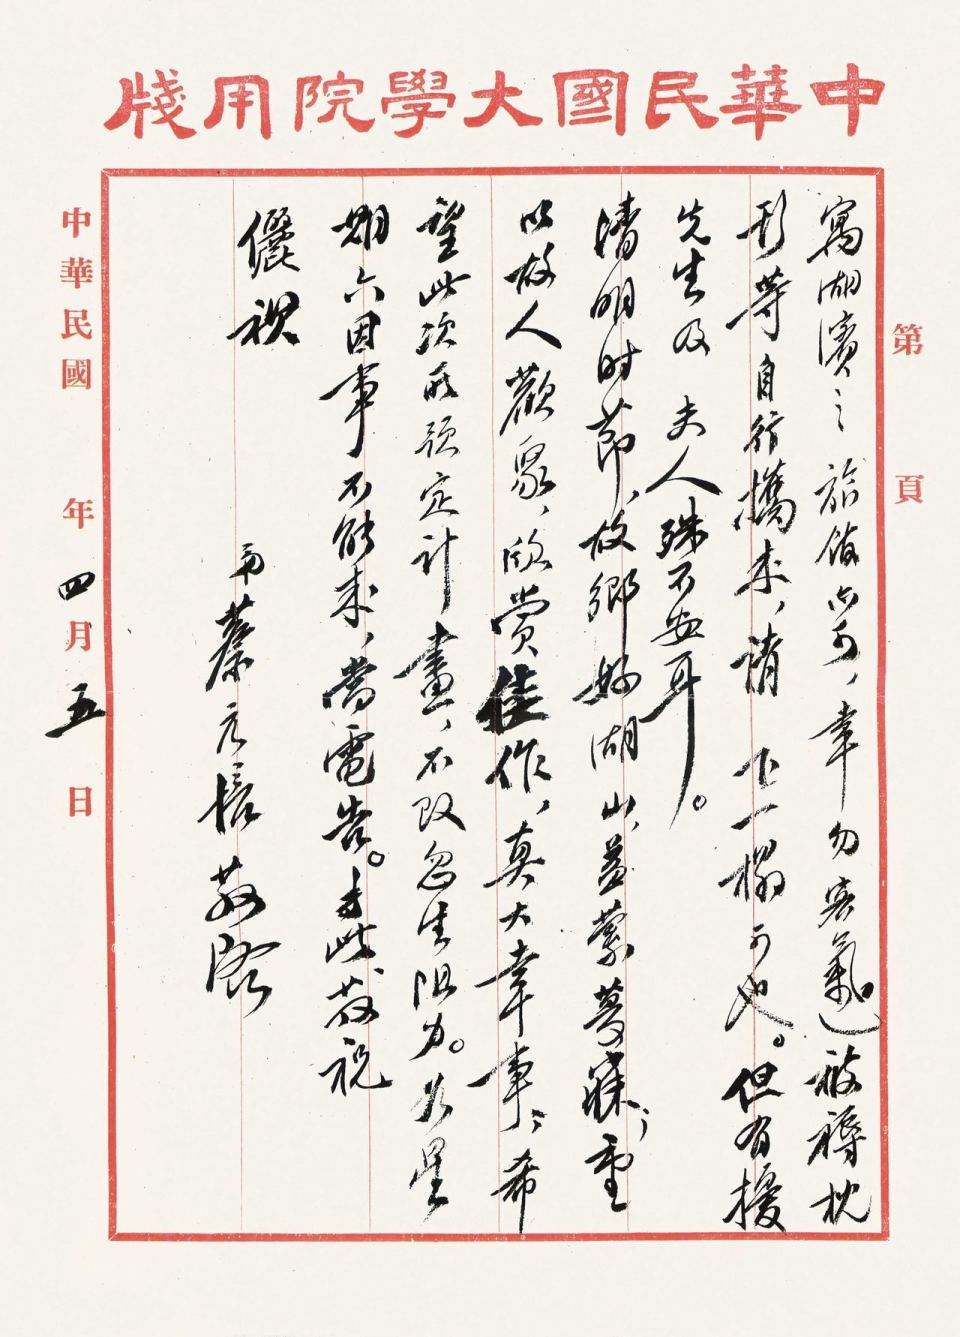 中華民國大學院用牋
第 頁
寓湖濱之旅館亦可,幸勿客氣)被褥枕
形等自行攜來,請下一榻可也。但有擾
先生及 夫人殊不安耳。
清明时節,故鄉好湖山,益縈夢寐;重
以故人歡聚,欣賞佳作,真大幸事;希
望此次所預定計畫,不致忽生阻力。如星
期六因事不能來,當電告。專此敬祝
儷祺
弟蔡元培敬啓
中華民國 年四月五日